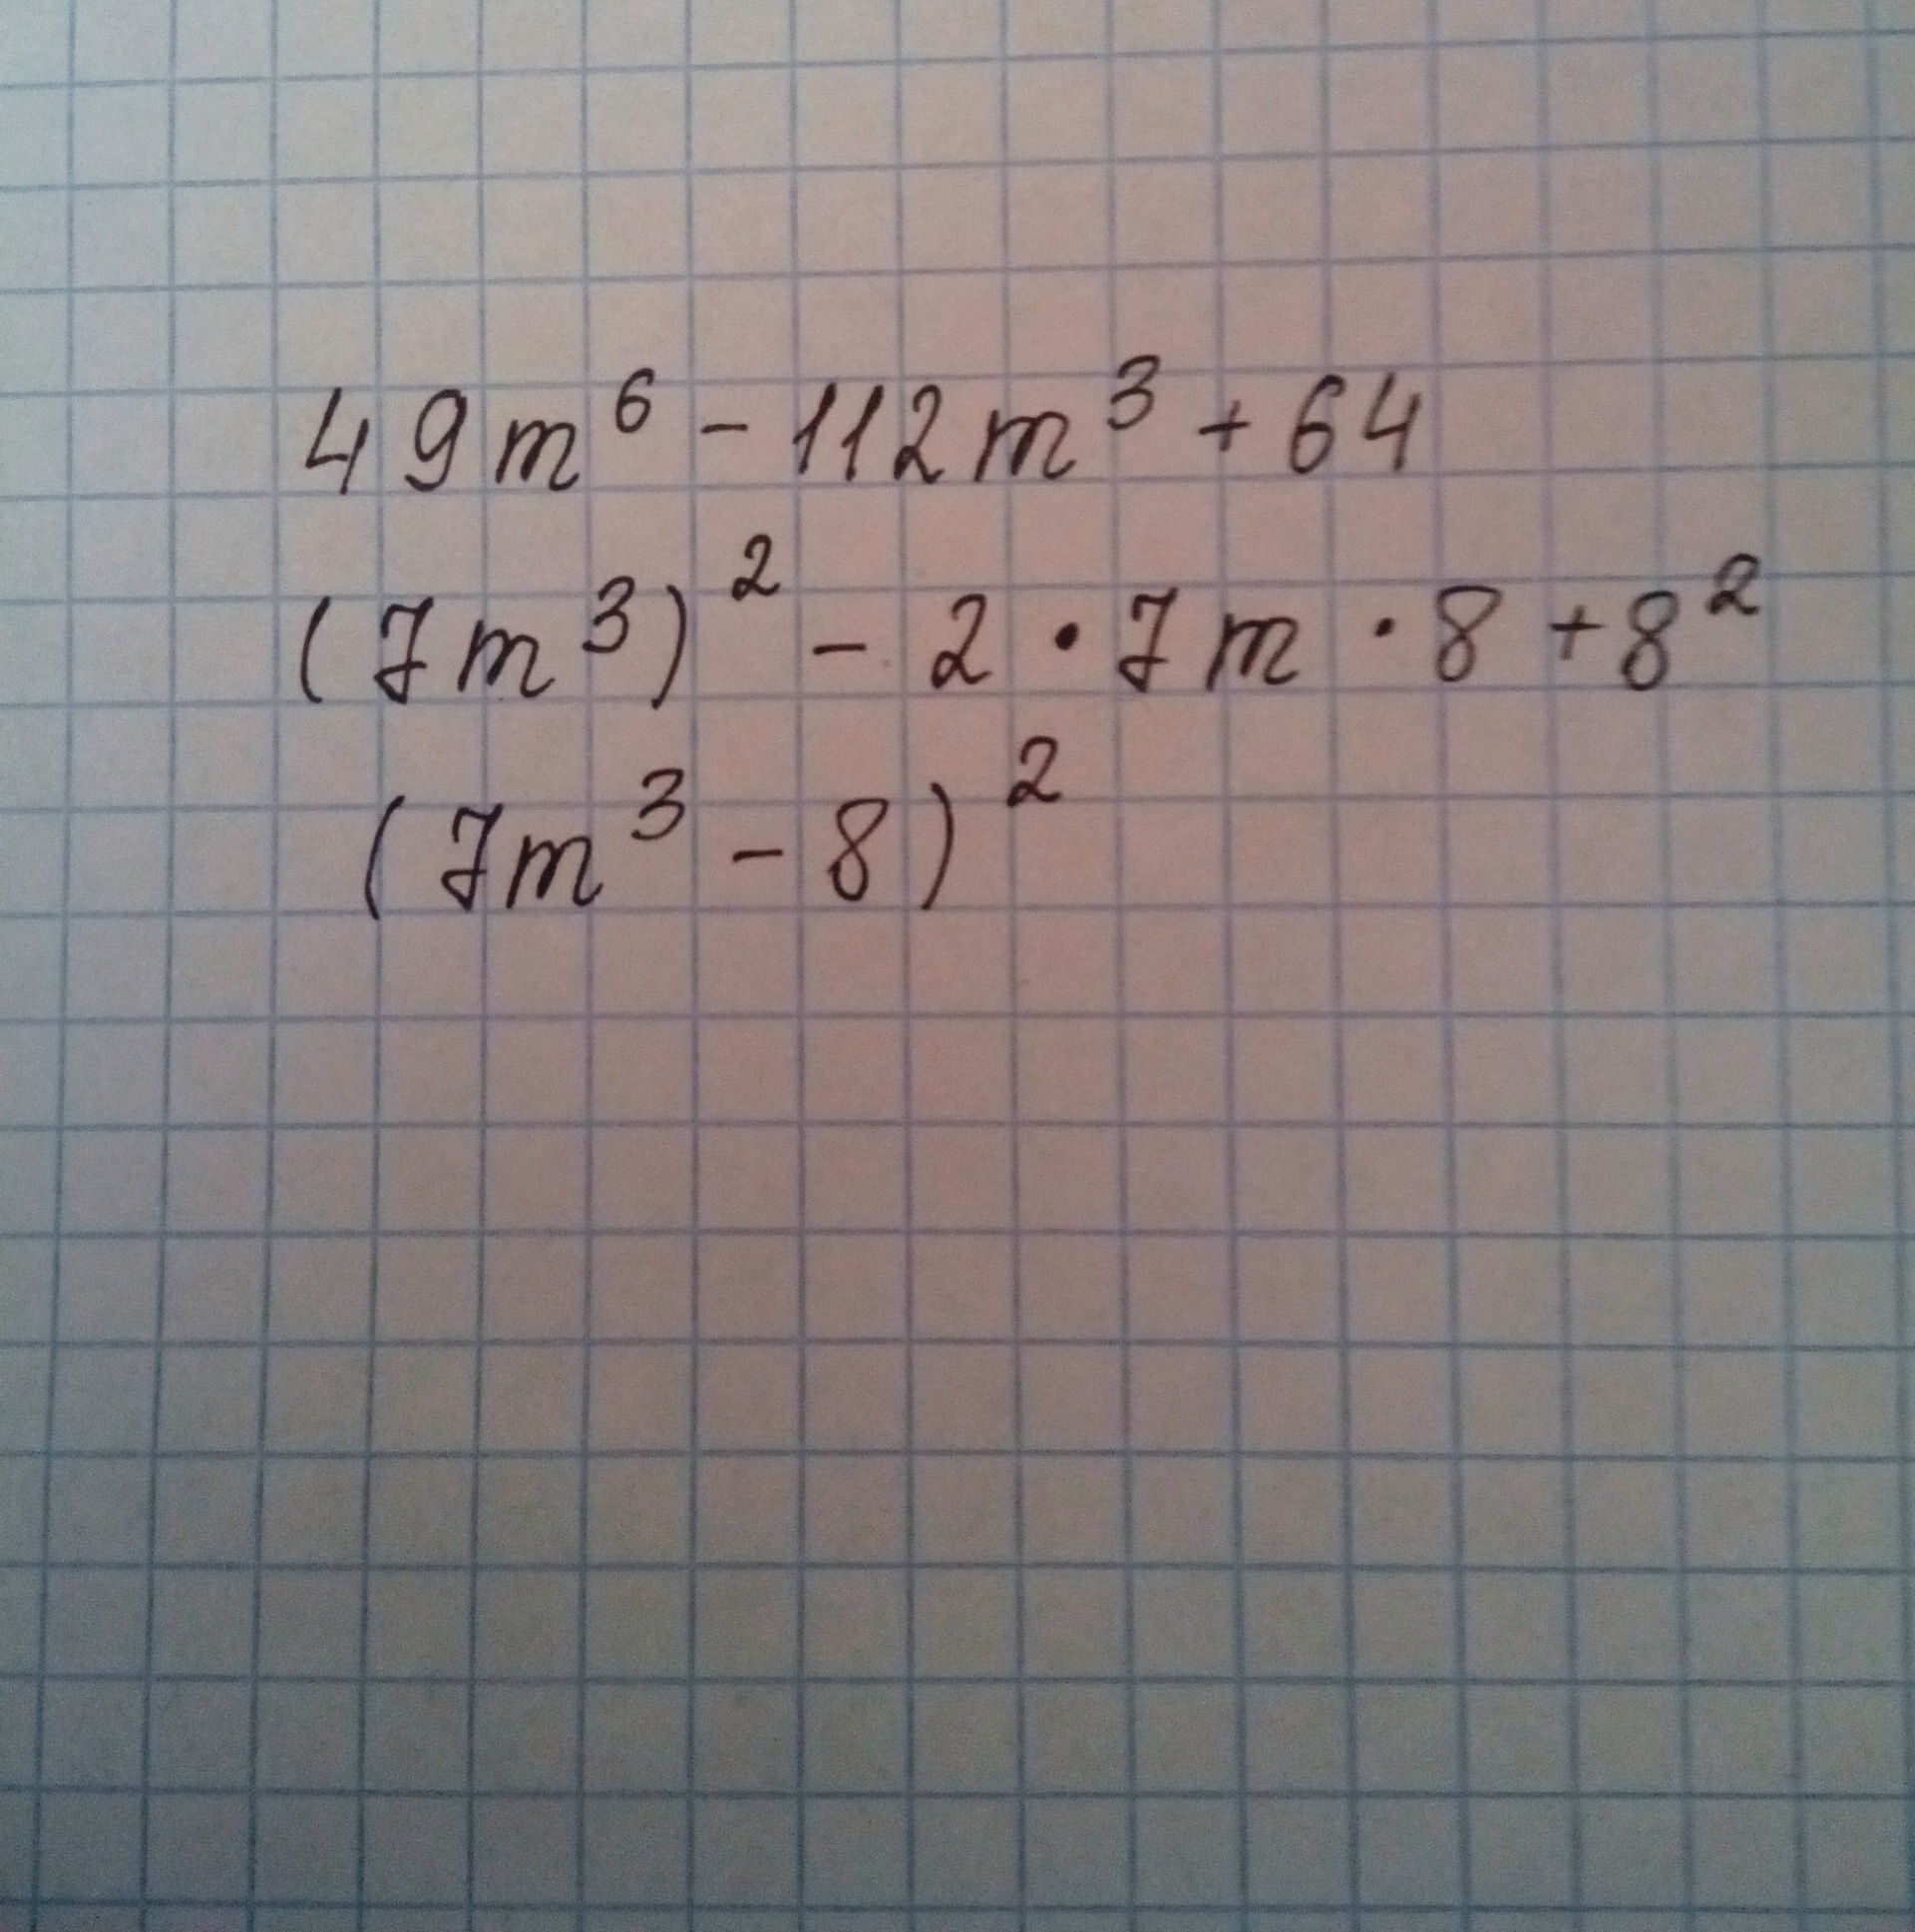 49m⁶ - 112m³ + 64
(7m³)² - 2 · 7m · 8 + 8²
(7m³ - 8)²